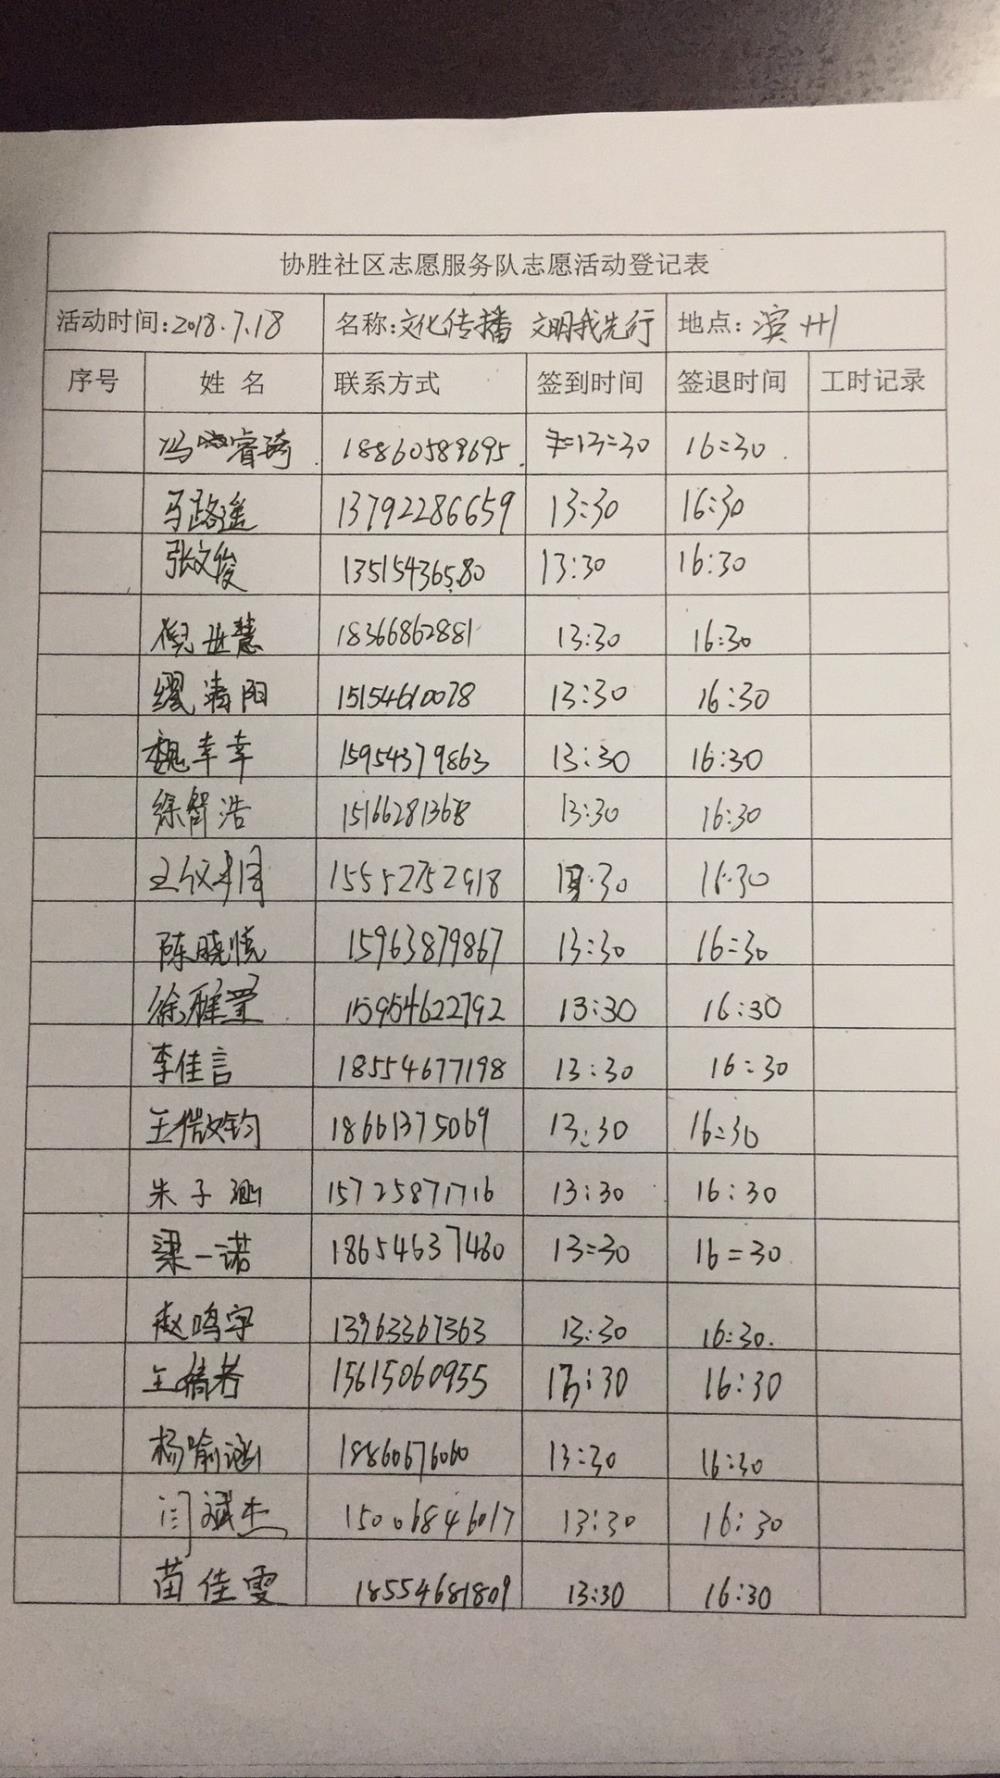 协胜社区志愿服务队志愿活动登记表
活动时间:2018.7.18 名称:文化传播 文明我先行 地点:滨州
序号 姓名 联系方式 签到时间 签退时间 工时记录
冯睿琦 18860589695 13:30 16:30
马路遥 13792286659 13:30 16:30
张文俊 13515436580 13:30 16:30
倪世慧 18366862881 13:30 16:30
缪清阳 15154610078 13:30 16:30
魏幸幸 15954379863 13:30 16:30
徐智浩 15166281368 13:30 16:30
15552752918 13:30 16:30
陈晓悦 15963879867 13:30 16:30
徐雅莹 15954622792 13:30 16:30
李佳言 18554677198 13:30 16:30
王微钧 18661375069 13:30 16:30
朱子涵 15725871716 13:30 16:30
梁一诺 18654637480 13:30 16:30
赵鸣宇 13963367363 13:30 16:30
王倩若 15615060955 13:30 16:30
杨喻涵 18860676060 13:30 16:30
闫斌杰 15006846017 13:30 16:30
苗佳雯 18554681809 13:30 16:30